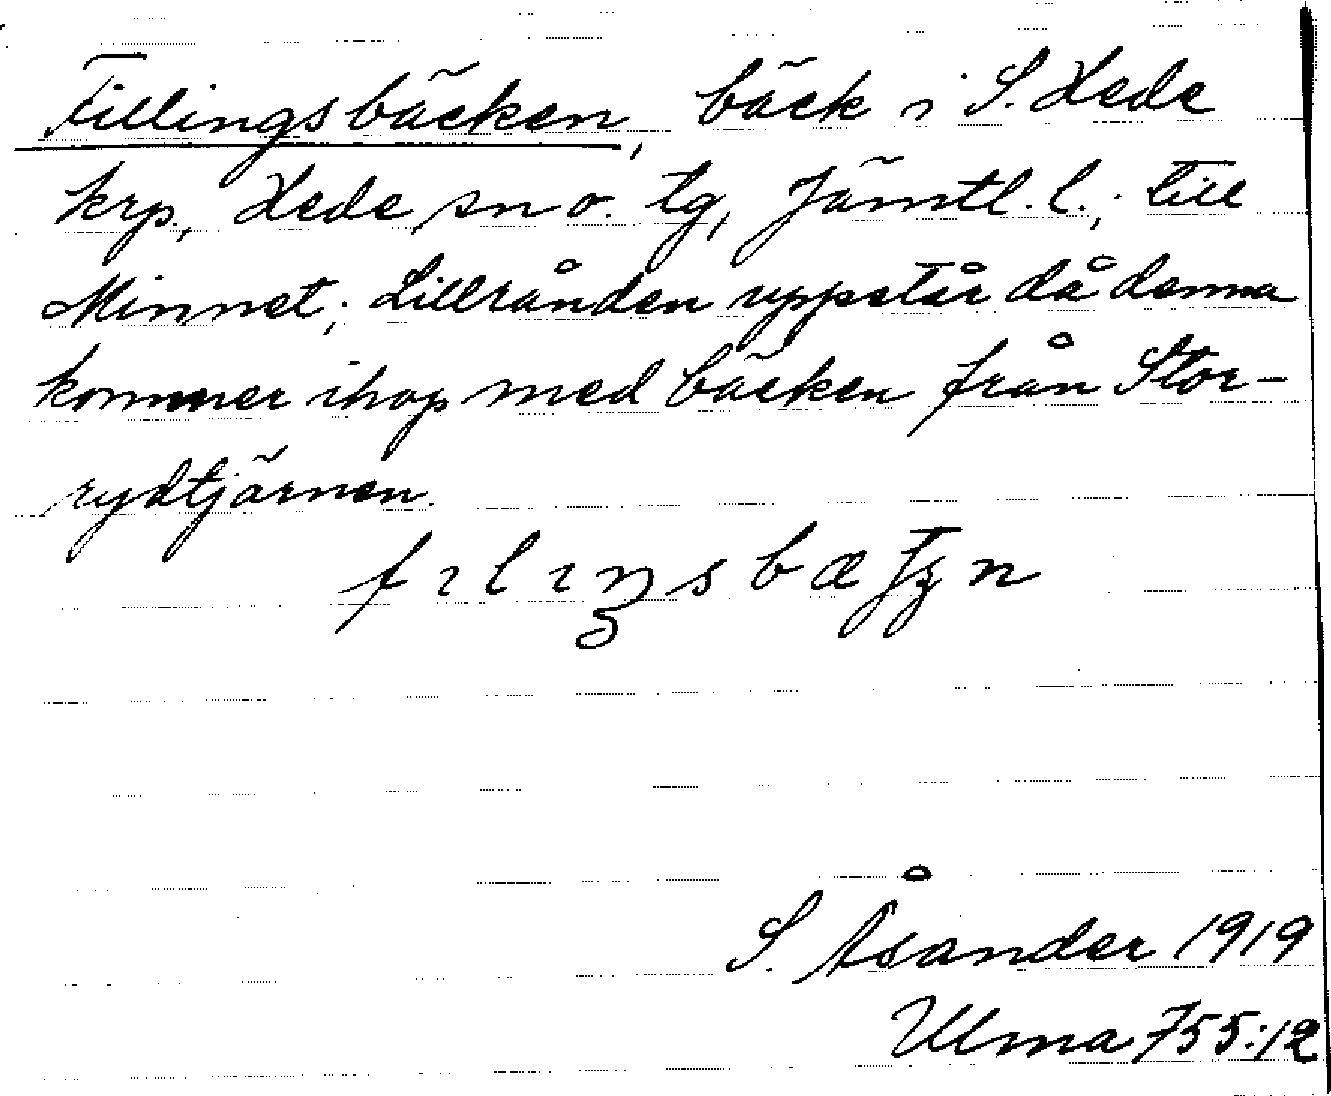 Fillingsbäcken, bäck i S. Hede
krp., Hede sn o. tg, Jämtl. l.; till
Minnet; Lillrånden uppstår då denna
kommer ihop med bäcken från Stor-
rydtjärnen.
S. Åsander 1919
Ulma 755:12